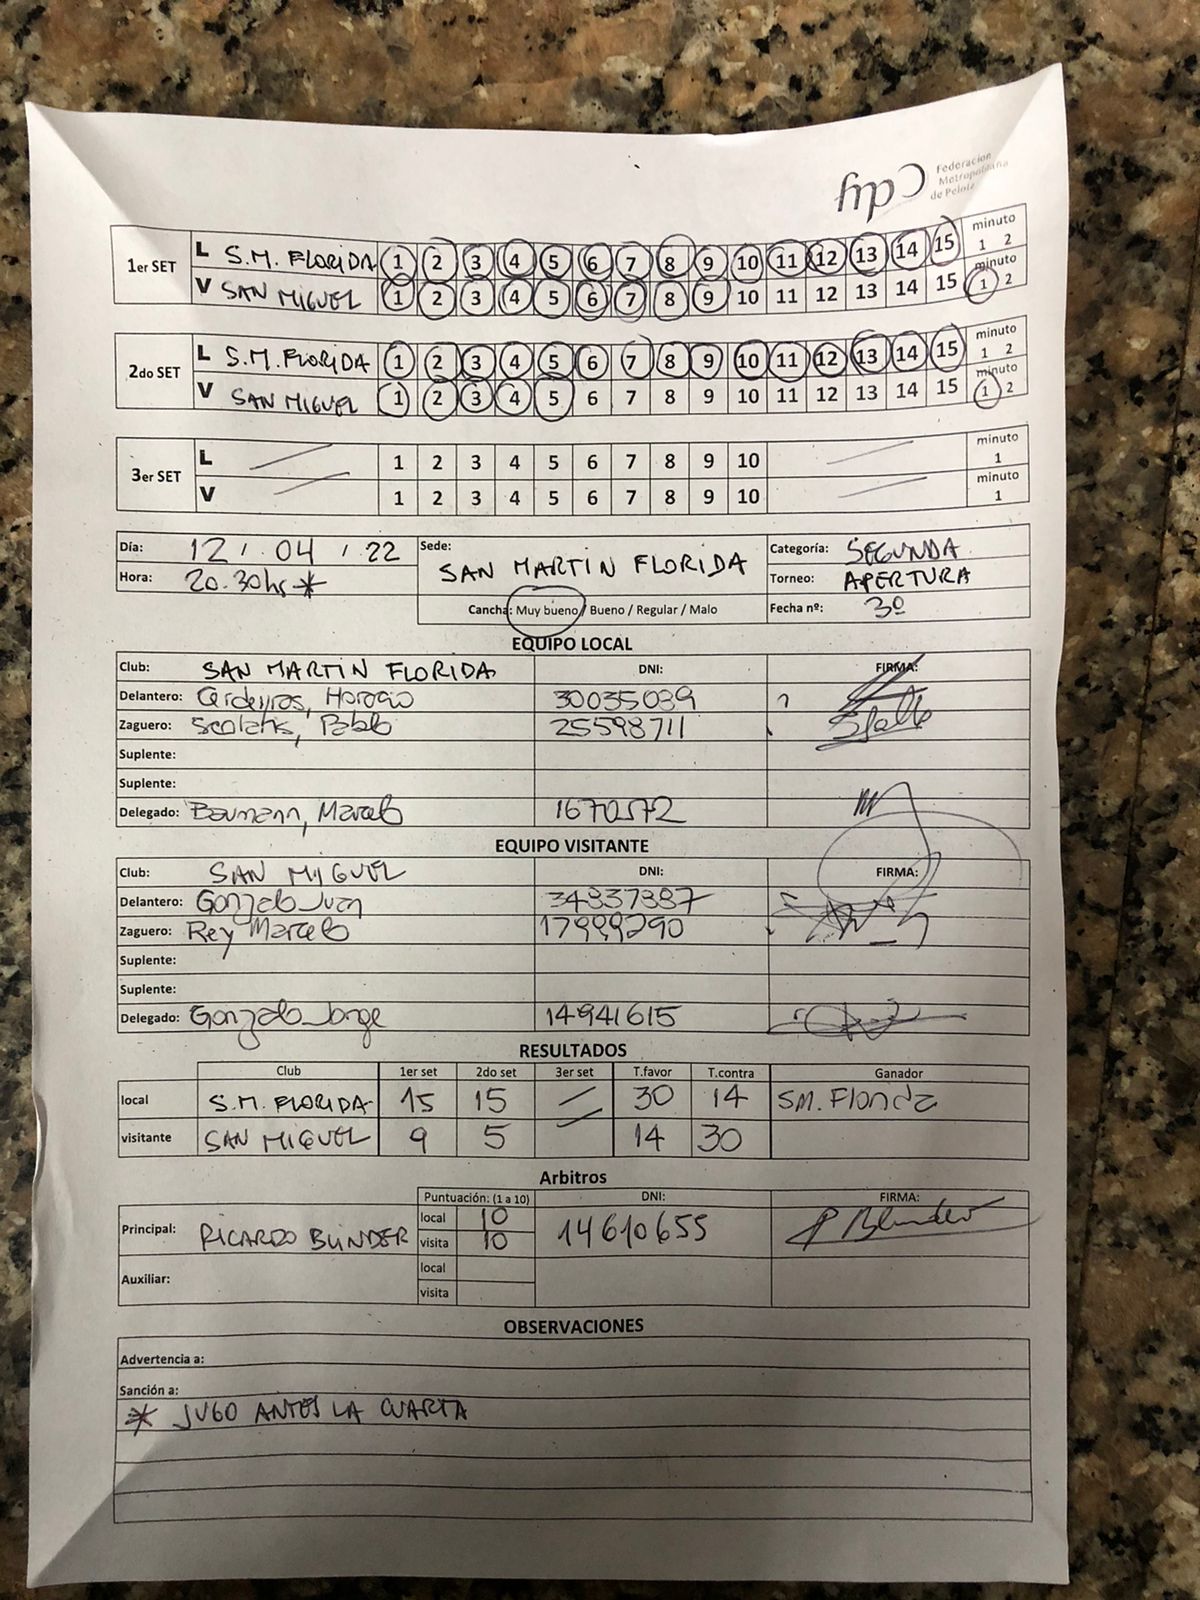 fmp Federacion
Metropolitana
de Pelota
1er SET L S.M. FLORIDA 1 2 3 4 5 6 7 8 9 10 11 12 13 14 15 minuto 1 2
V SAN MIGUEL 1 2 3 4 5 6 7 8 9 10 11 12 13 14 15 minuto 1 2
2do SET L S.M. FLORIDA 1 2 3 4 5 6 7 8 9 10 11 12 13 14 15 minuto 1 2
V SAN MIGUEL 1 2 3 4 5 6 7 8 9 10 11 12 13 14 15 minuto 1 2
3er SET L 1 2 3 4 5 6 7 8 9 10 minuto 1
V 1 2 3 4 5 6 7 8 9 10 minuto 1
Día: 12 / 04 / 22 Sede: SAN MARTIN FLORIDA Categoría: SEGUNDA
Hora: 20.30hs * Torneo: APERTURA
Cancha: Muy bueno / Bueno / Regular / Malo Fecha nº: 3º
EQUIPO LOCAL
Club: SAN MARTIN FLORIDA DNI: FIRMA:
Delantero: Horacio 30035039
Zaguero: Pablo 25598711
Suplente:
Suplente:
Delegado: Baumann, Marcelo 1670572
EQUIPO VISITANTE
Club: SAN MIGUEL DNI: FIRMA:
Delantero: Gonzalo Juan 34837387
Zaguero: Rey Marcelo 17999290
Suplente:
Suplente:
Delegado: Gonzalo Jorge 14941615
RESULTADOS
Club 1er set 2do set 3er set T.favor T.contra Ganador
local S.M. FLORIDA 15 15 30 14 SM. Florida
visitante SAN MIGUEL 9 5 14 30
Arbitros
Puntuación: (1 a 10) DNI: FIRMA:
Principal: RICARDO BLINDER local 10 14610655 R Blinder
visita 10
Auxiliar: local
visita
OBSERVACIONES
Advertencia a:
Sanción a:
* JUGO ANTES LA CUARTA